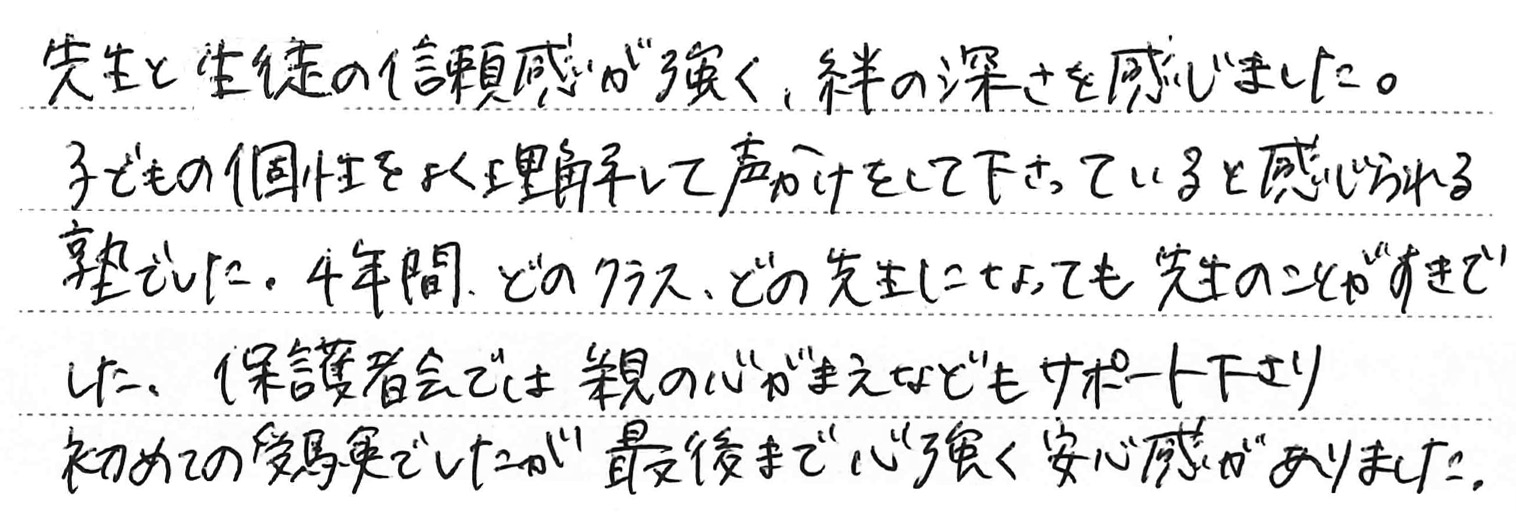 先生と生徒の信頼感が強く、絆の深さを感じました。
子どもの個性をよく理解して声かけをして下さっていると感じられる
塾でした。4年間、どのクラス、どの先生になっても先生のことがすきで
した。保護者会では親の心がまえなどもサポート下さり
初めての受験でしたが最後まで心強く安心感がありました。